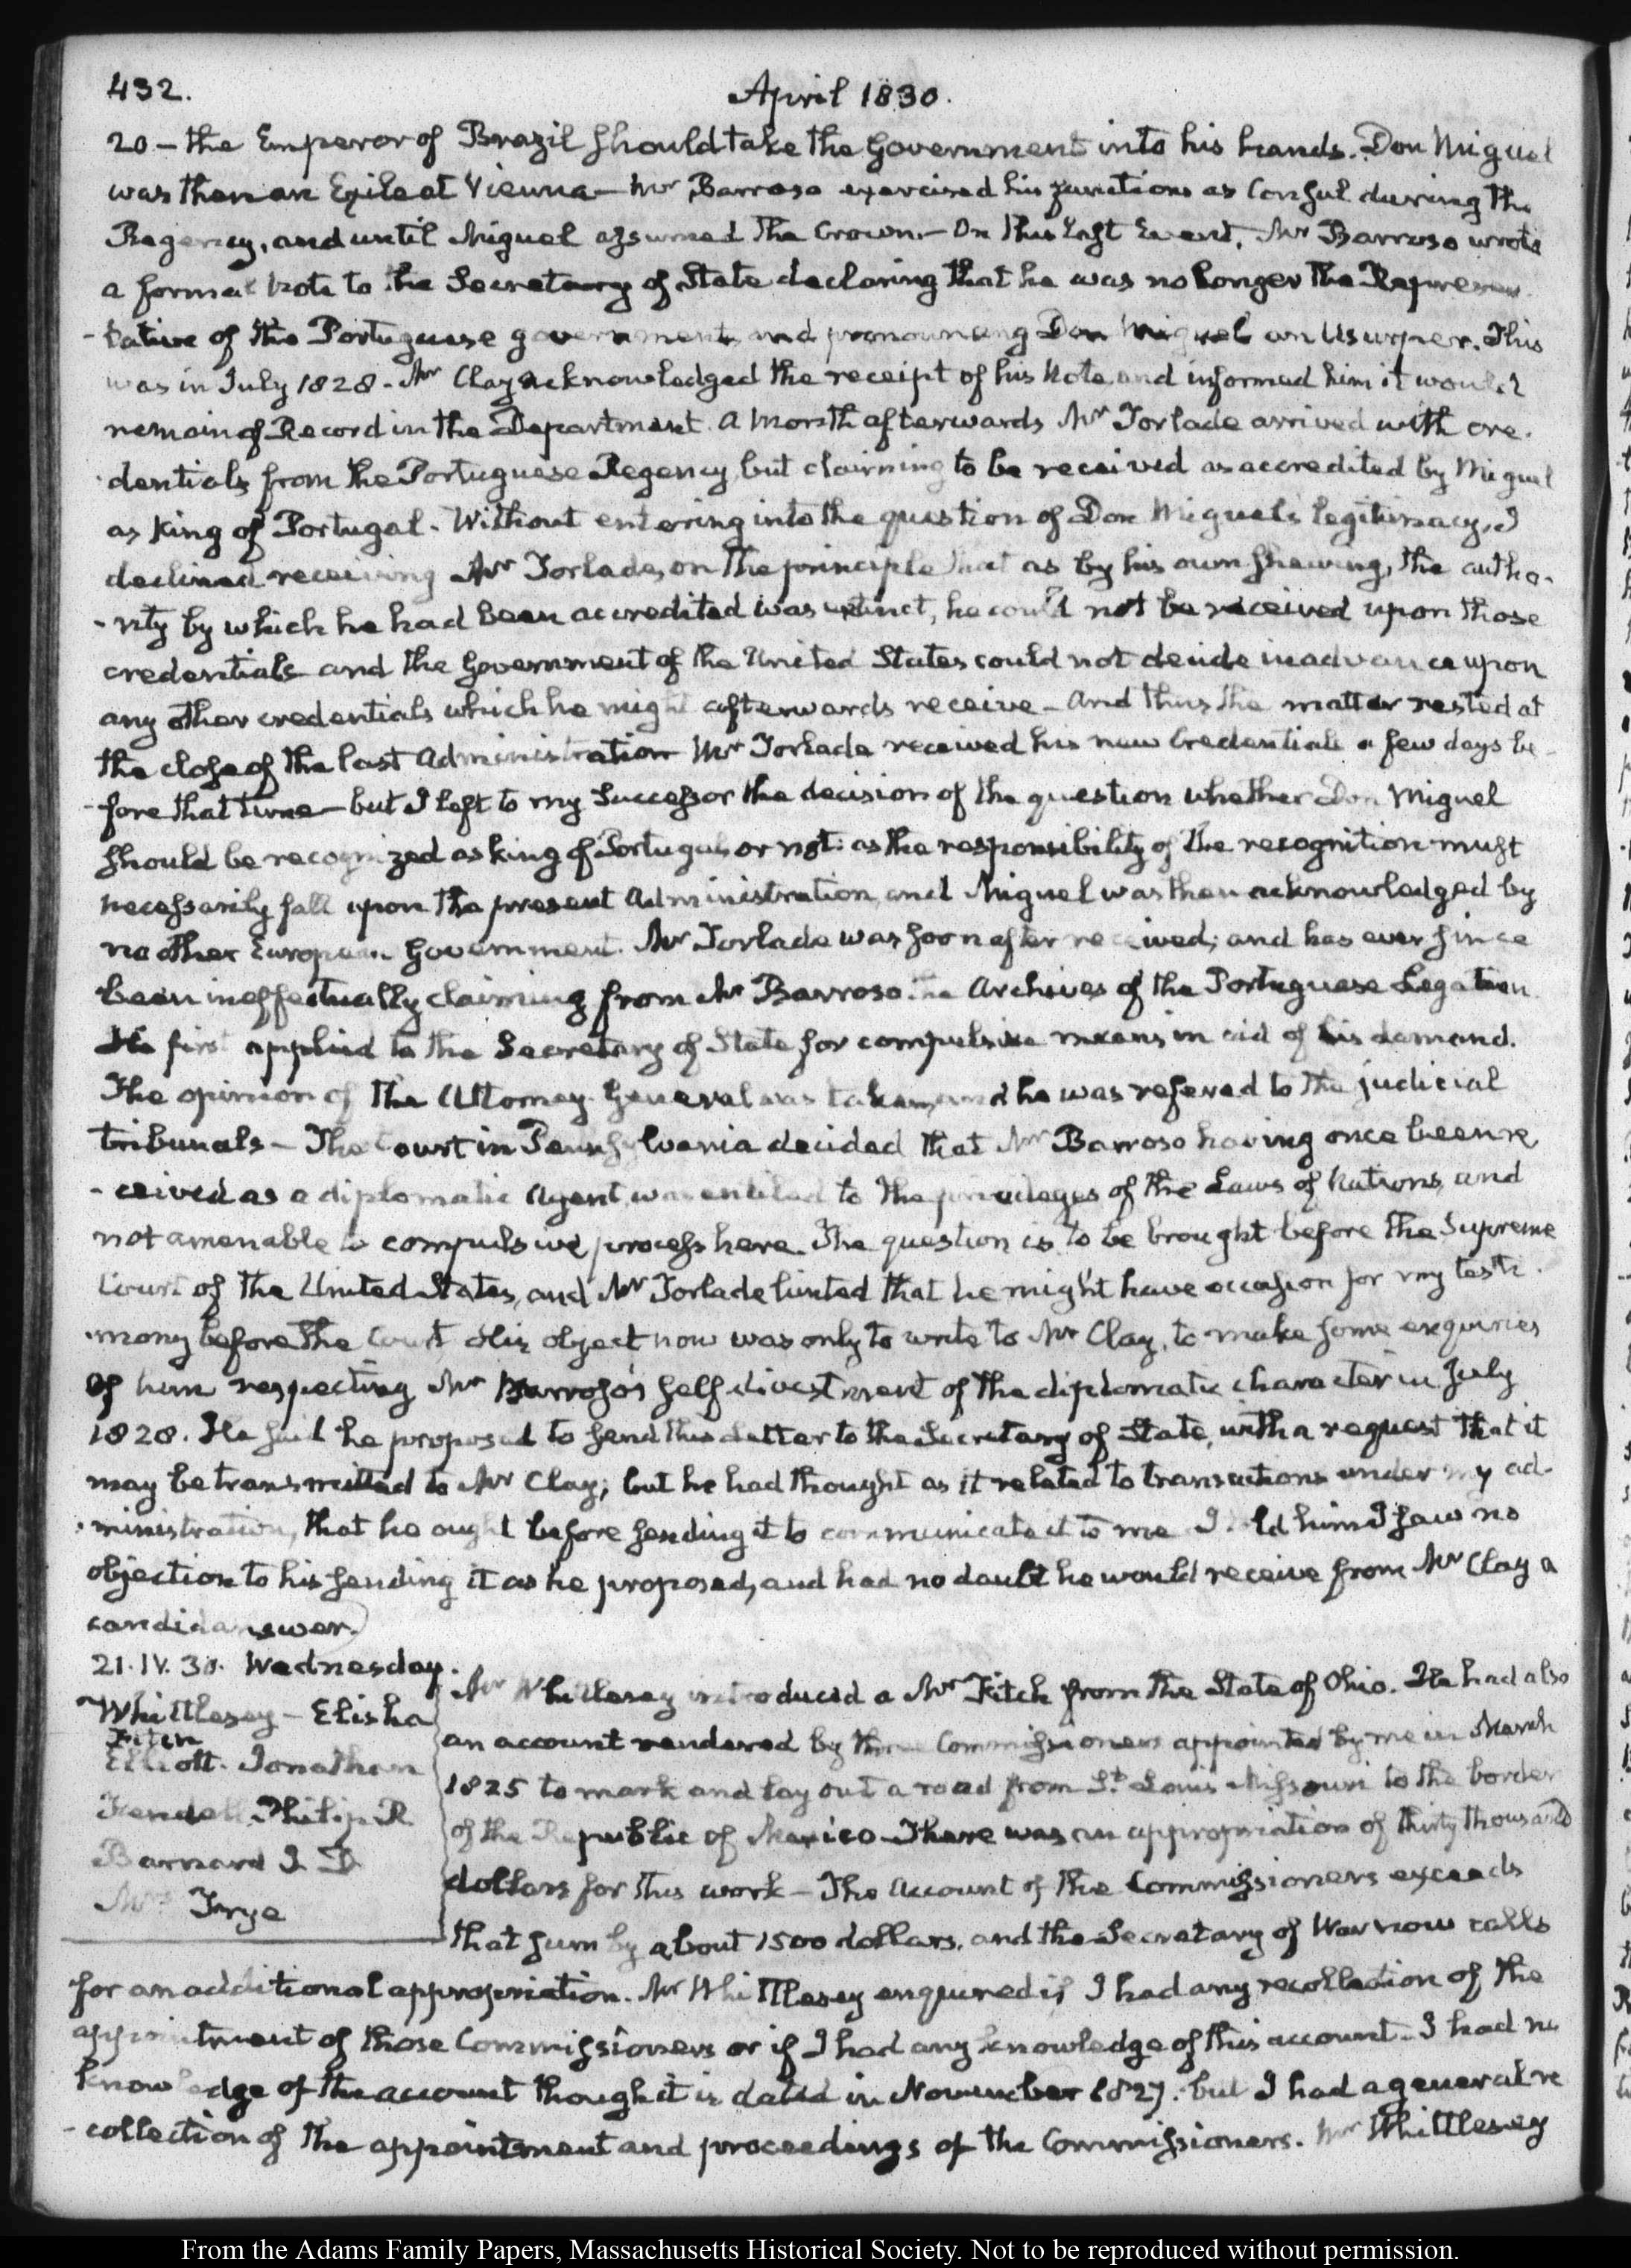 432.
April 1830.
20 – the Emperor of Brazil should take the Government into his hands. Don Miguel
was then an Exile at Vienna – Mr Barroso exercised his functions as Consul during the
Regency, and until Miguel assumed the Crown – On this last Event, Mr Barroso wrote
a formal Note to the Secretary of State declaring that he was no longer the Represen
-tative of the Portuguese government and pronouncing Don Miguel an Usurper. This
was in July 1828 – Mr Clay acknowledged the receipt of his Note and informed him it would
remain of Record in the Department. A Month afterwards Mr Torlade arrived with cre-
-dentials from the Portuguese Regency but claiming to be received as accredited by Miguel
as King of Portugal – Without entering into the question of Don Miguel's legitimacy, I
declined receiving Mr Torlade, on the principle that as by his own shewing, the autho-
-rity by which he had been accredited was extinct, he could not be received upon those
credentials and the Government of the United States could not decide in advance upon
any other credentials which he might afterwards receive – And thus the matter rested at
the close of the last Administration Mr Torlade received his new Credentials a few days be-
-fore that time – but I left to my Successor the decision of the question whether Don Miguel
should be recognized as king of Portugal, or not: as the responsibility of the recognition must
necessarily fall upon the present Administration, and Miguel was then acknowledged by
no other European Government. Mr Torlade was soon after received; and has ever since
been ineffectually claiming from Mr Barroso the Archives of the Portuguese Legation
He first applied to the Secretary of State for compulsive means in aid of his demand.
The opinion of the Attorney General was taken, and he was refered to the judicial
tribunals – The Court in Pennsylvania decided that Mr Barroso having once been re
-ceived as a diplomatic Agent, was entitled to the privileges of the Laws of Nations, and
not amenable to compulsive process here. The question is to be brought before the Supreme
Court of the United States, and Mr Torlade hinted that he might have occasion for my testi-
-mony before the Court His object now was only to write to Mr Clay, to make some enquiries
of him respecting Mr Barroso's self divestment of the diplomatic character in July
1828. He said he proposed to send this Letter to the Secretary of State, with a request that it
may be transmitted to Mr Clay; but he had thought as it related to transactions under my ad-
-ministration, that he ought before sending it to communicate it to me I told him I saw no
objection to his sending it as he proposed, and had no doubt he would receive from Mr Clay a
candid answer.
21. IV. 30. Wednesday.
Whittlesey – Elisha
Fitch
Elliott. Jonathan
Fendall. Philip R
Barnard I. D
Mrs Frye
Mr Whittlesey introduced a Mr Fitch from the State of Ohio. He had also
an account rendered by three Commissioners appointed by me in March
1825 to mark and lay out a road from St. Louis Missouri to the border
of the Republic of Mexico – There was an appropriation of thirty thousand
dollars for this work – The Account of the Commissioners exceeds
that sum by about 1500 dollars, and the Secretary of War now calls
for an additional appropriation. Mr Whittlesey enquired if I had any recollection of the
appointment of those Commissioners or if I had any knowledge of this account – I had no
knowledge of the account though it is dated in November 1827. but I had a general re
-collection of the appointment and proceedings of the Commissioners. Mr Whittlesey
From the Adams Family Papers, Massachusetts Historical Society. Not to be reproduced without permission.